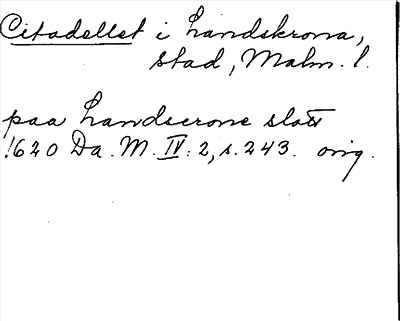 Citadellet i Landskrona,
stad, Malm. l.
paa Landscrone slott
1620 Da. M. IV: 2, s. 243. orig.